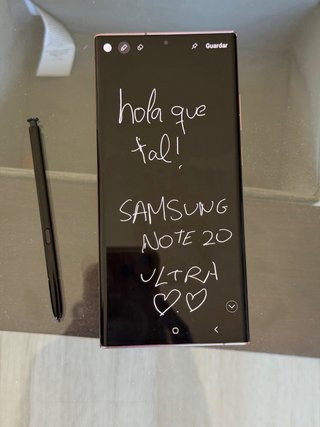 Guardar
hola que
tal!
SAMSUNG
NOTE 20
ULTRA